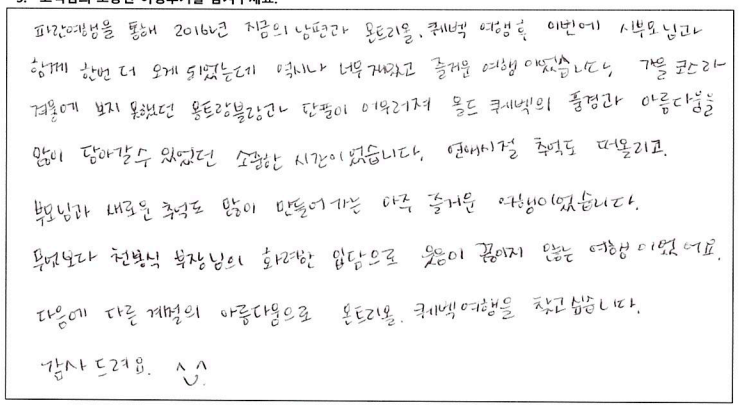 파란여행을 통해 2016년 지금의 남편과 몬트리올, 퀘벡 여행 후 이번에 시부모님과
함께 한번 더 오게 되었는데 역시나 너무 재밌고 즐거운 여행이었습니다. 가을 코스라
겨울에 보지 못했던 몽트랑블랑과 단풍이 어우러져 올드 퀘벡의 풍경과 아름다움을
많이 담아갈 수 있었던 소중한 시간이었습니다. 연애시절 추억도 떠올리고.
부모님과 새로운 추억도 많이 만들어가는 아주 즐거운 여행이었습니다.
무엇보다 천봉식 부장님의 화려한 입담으로 웃음이 끊이지 않는 여행이었어요.
다음에 다른 계절의 아름다움으로 몬트리올, 퀘벡여행을 찾고 싶습니다.
감사드려요. ^^